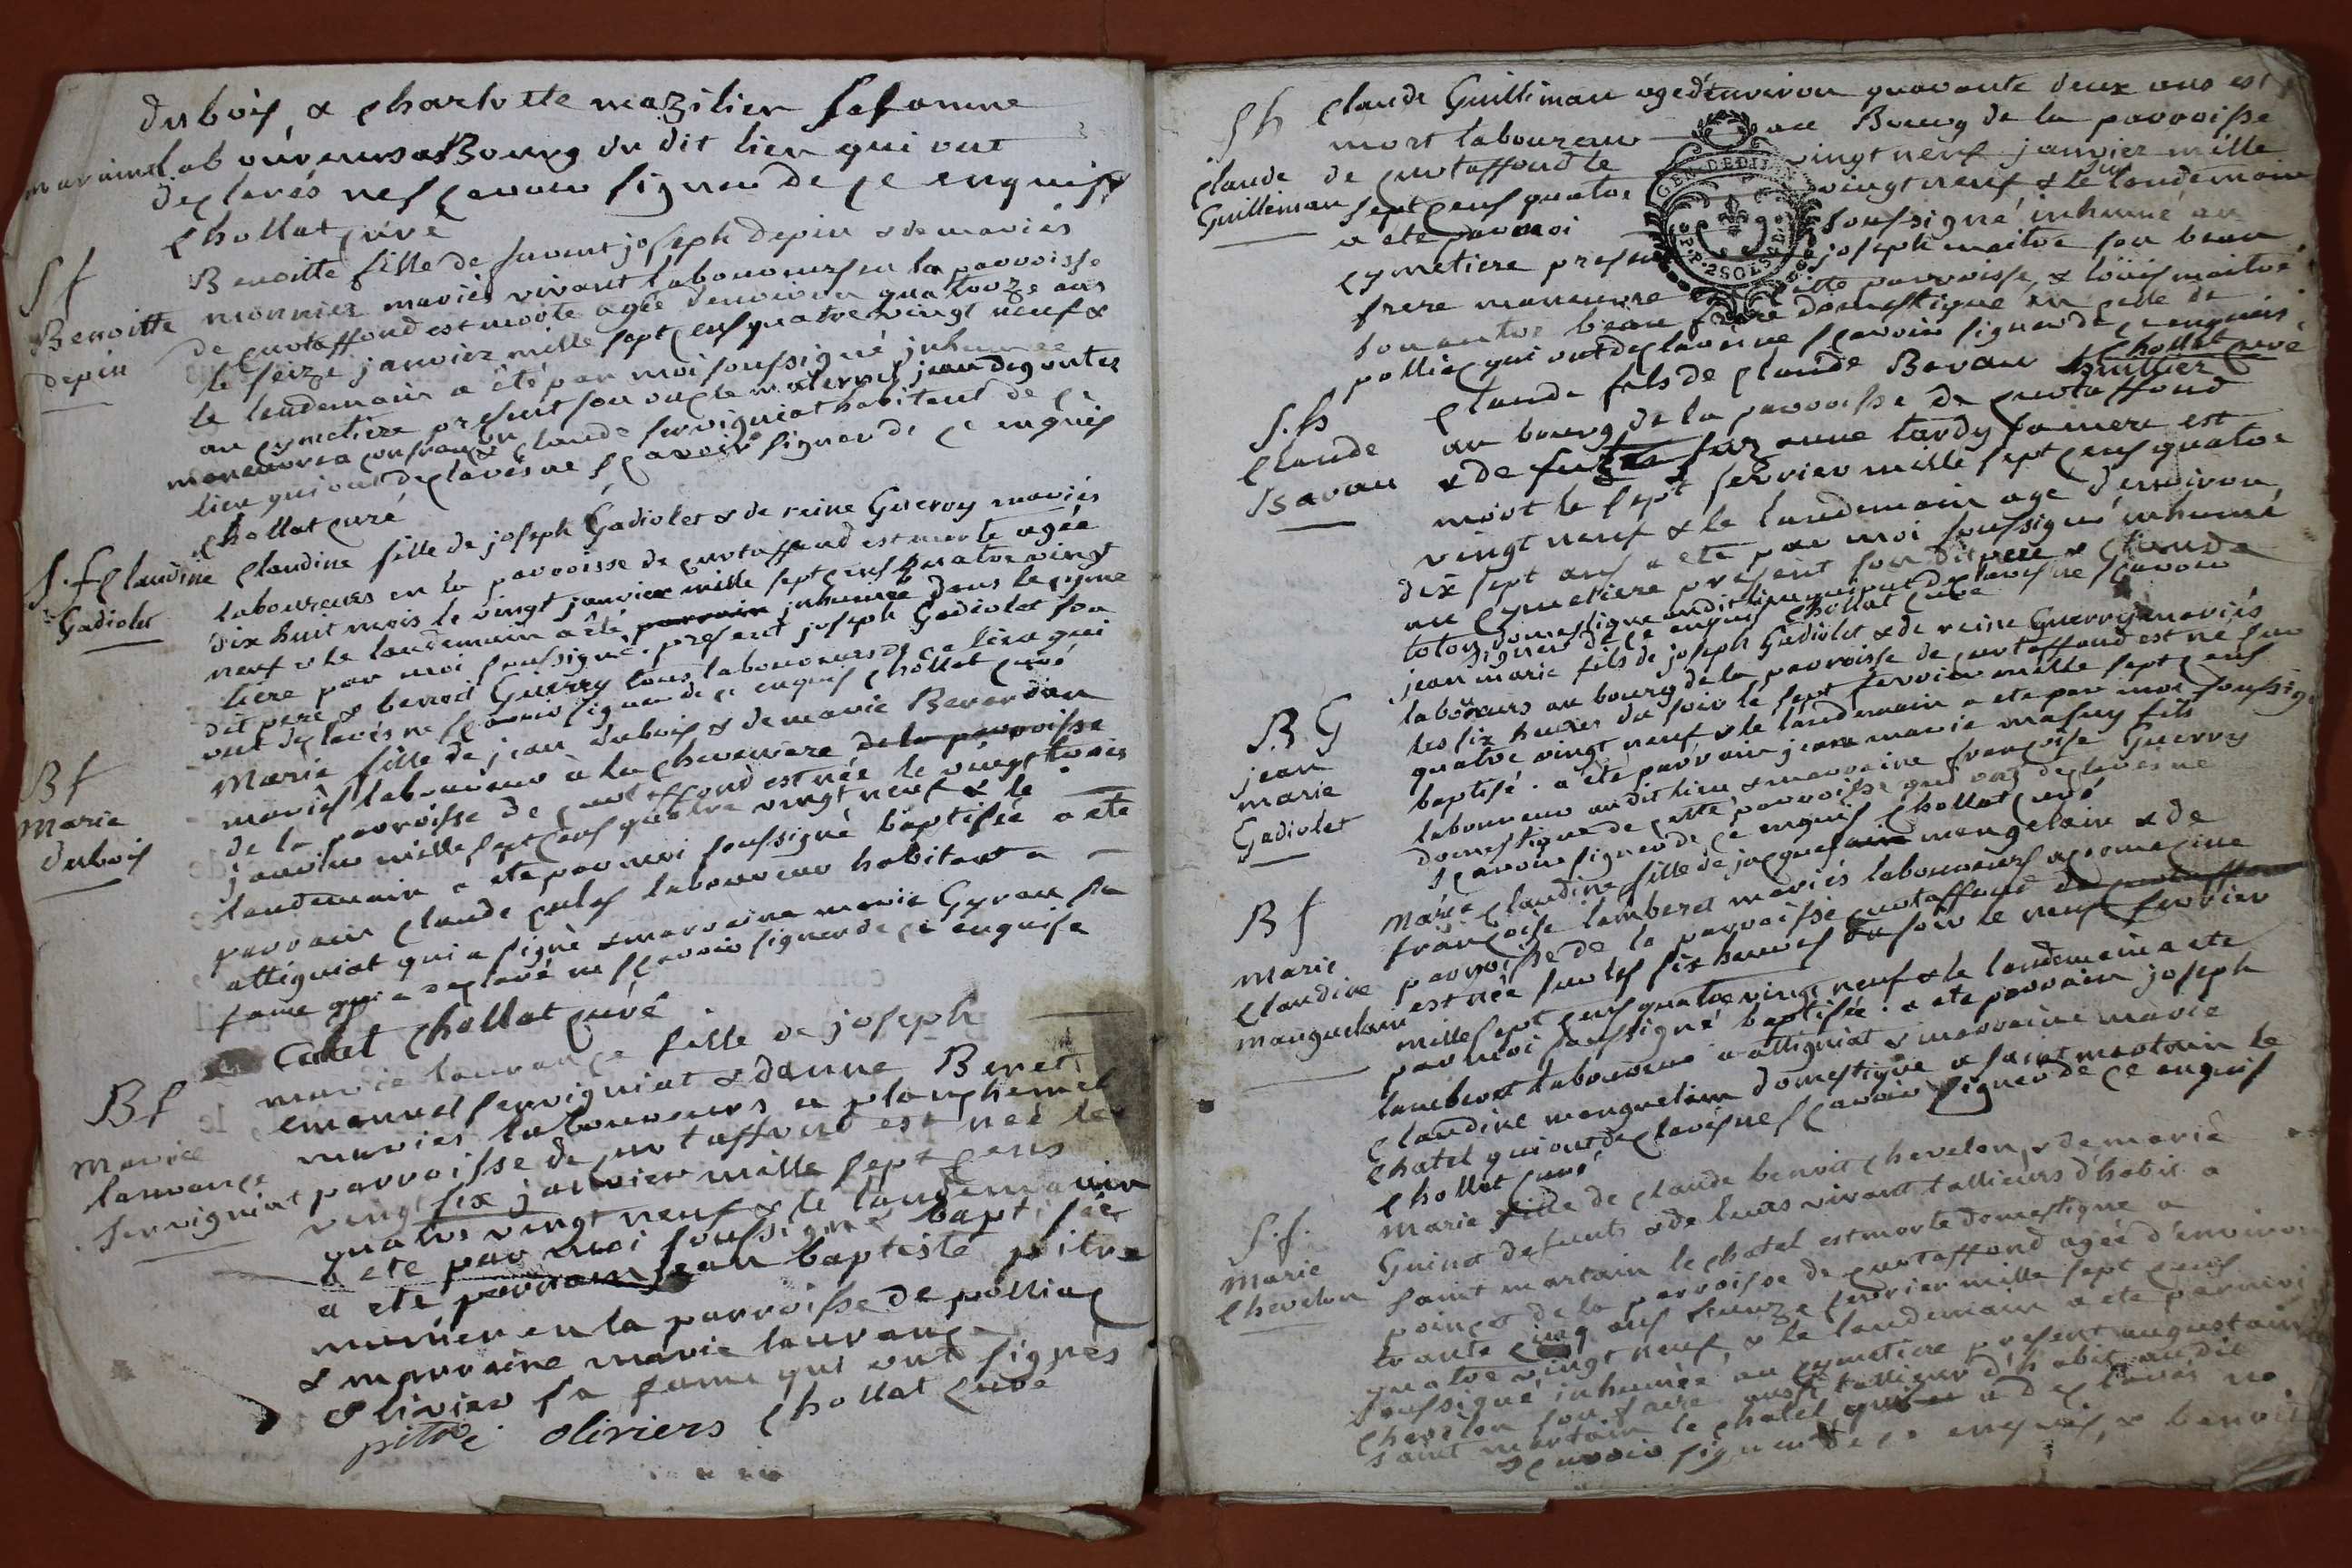 dubois, & Charlotte mazilier sa famme
marainel laboureurs a Bourg du dit lieu qui ont
declarés ne sçavoir signer de ce enquis
Chollat curé
S f Benoitte fille de favent joseph depin & de mariés
Benoitte monnier mariés vivant laboureurs en la parroisse
depin de curtaffond est morte agée d'environ quatorze ans
le seize janvier mille sept cens quatre vingt neuf &
le lendemain a été par moi soussigné inhumée
au cymetiere present son oncle maternel jean degoutes
manouvre a confranson & claude servigniat habitant de ce
lieu qui ont declarés ne sçavoir signer de ce enquis
Chollat curé
S. f Claudine Claudine fille de joseph Gadiolet & de reine Guerry mariés
Gadiolet laboureurs en la parroisse de curtaffond est morte agée
dix huit mois le vingt janvier mille sept cens quatre vingt
neuf & le landemain a été parrain inhumée dans le cyme
tiere par moi soussigné. present joseph Gadiolet son
dit pere & benoit Guerry tous laboureurs de ce lieu qui
ont declarés ne sçavoir signer de ce enquis Chollat curé
B f Marie fille de jean dubois & de marie Beverdan
Marie mariés laboureur à la cheverière de la parroisse
dubois de la parroisse de curtaffond est née le vingt trois
janvier mille sept cens quatre vingt neuf & le
landemain a ete par moi soussigné baptisée a ete
parrain claude calas laboureur habitant a
attigniat qui a signé & marraine marie Gyran sa
fame qui a declaré ne sçavoir signer de ce enquise
Calat Chollat curé
B f marie laurance fille de joseph
Marie emanuel servigniat & danne Benet
laurance mariés laboureurs a planchemel
servigniat parroisse de curtaffond est née le
vingt six janvier mille sept cens
quatre vingt neuf & le landemain
a ete par moi soussigné baptisée
a ete parrain jean baptiste pitre
munier en la parroisse de polliac
& marraine marie laurance
Olivier sa fame qui ont signés
pitre oliviers Chollat curé
S h Claude Guilliman agé d'environ quarante deux ans est
mort laboureur au Bourg de la parroisse
claude de curtaffond le vingt neuf janvier mille
Guilliman sept cens quatre vingt neuf & le landemain
a ete par moi soussigné inhumé au
GEN DE DIJ
2 SOLS
cymetiere present joseph maitre son beau
frere manouvre cette parroisse, & loüis maitre
son autre beau frere domestique en celle de
polliac qui ont declarés ne sçavoir signer de ce enquis
Chollat curé
S. h Claude fils de Claude Bavau
Claude au bourg de la parroisse de curtaffond
Bavau & de anne tardy sa mere est
mort le sept fevrier mille sept cens quatre
vingt neuf & le landemain age d'environ
dix sept ans a ete par moi soussigné inhumé
au cymetiere présent son dit pere & Claude
toton domestique au dit lieu qui ont declarés ne sçavoir
signer de ce enquis Chollat curé
B G jean marie fils de joseph Gadiolet & de reine Guerry mariés
jean laboureurs au bourg de la parroisse de curtaffond est né sur
marie les six heures du soir le sept fevrier mille sept cens
Gadiolet quatre vingt neuf & le landemain a ete par moi soussigné
baptisé. a été parrain jean marie masuy fils
laboureur au dit lieu & marraine françoise Guerry
domestique de cette parroisse qui ont declarés ne
sçavoir signer de ce enquis Chollat curé
B f Marie Claudine fille de jacques mangelain & de
marie françoise lambert mariés laboureurs a
Claudine parroisse de la parroisse curtaffond
manguelain est née sur les six heures du soir le neuf fevrier
mille sept cens quatre vingt neuf & le landemain a ete
par moi soussigné baptisée. a ete parrain joseph
lambert laboureur a attigniat & marraine marie
Claudine manguelain domestique a saint martain le
chatel qui ont declarés ne sçavoir signer de ce enquis
Chollat curé
S. f. Marie fille de Claude benoit Chevelon, & de marie
Marie Guinet defunts & de leurs vivant tallieurs d'habit a
Chevelon saint martain le chatel est morte domestique a
poincet de la parroisse de curtaffond agée d'environ
trante cinq ans fevrier mille sept cens
quatre vingt neuf, & le landemain a ete par moi
soussigné inhumée au cymetiere present augustain
Chevelon son frere aussi tallieur d'habit au dit
saint martain le chatel qui a declarés ne
sçavoir signer de ce enquis, & benoit